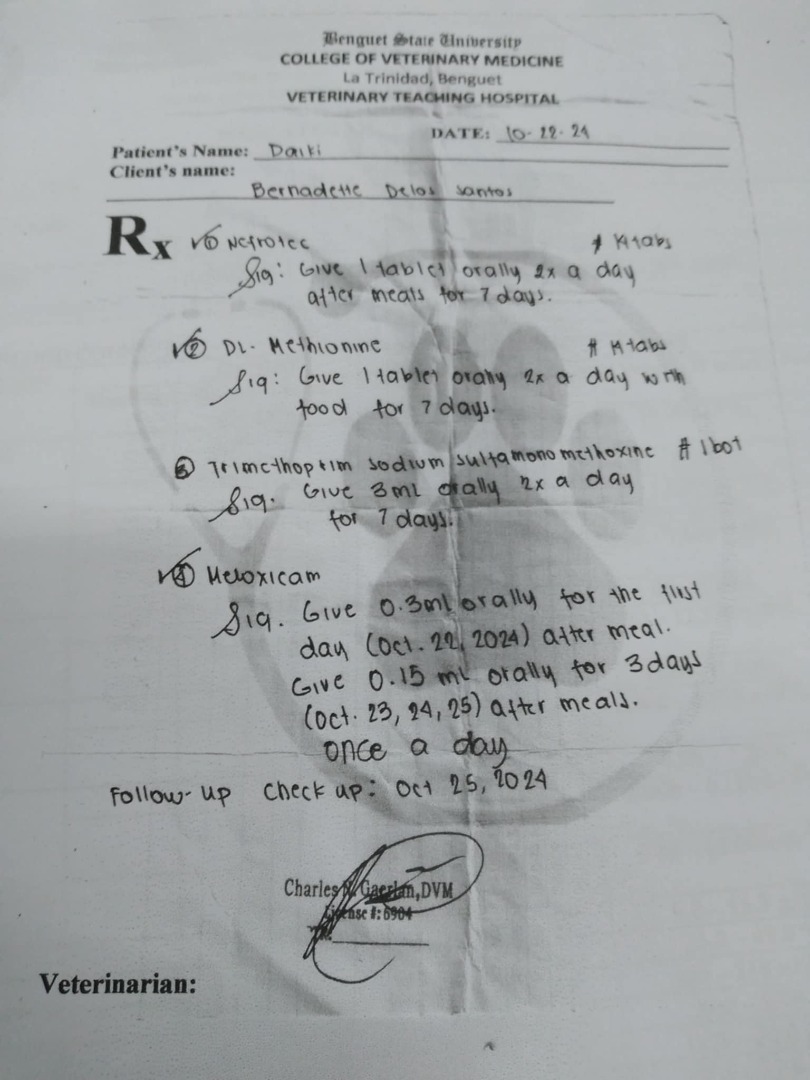 Benguet State University
COLLEGE OF VETERINARY MEDICINE
La Trinidad, Benguet
VETERINARY TEACHING HOSPITAL
DATE: 10-22-24
Patient's Name: Daiki
Client's name:
Bernadette Delos Santos
Rx ① Nefrotec # 14 tabs
Sig: Give 1 tablet orally 2x a day
after meals for 7 days.
② DL-Methionine # 14 tabs
Sig: Give 1 tablet orally 2x a day with
food for 7 days.
③ Trimethoprim sodium sulfamonomethoxine # 1 bot
Sig. Give 3ml orally 2x a day
for 7 days.
④ Meloxicam
Sig. Give 0.3ml orally for the first
day (Oct. 22, 2024) after meal.
Give 0.15 ml orally for 3 days
(Oct. 23, 24, 25) after meals.
once a day
Follow-up check up: Oct 25, 2024
Charles Gaerlan, DVM
License #: 6904
Veterinarian: